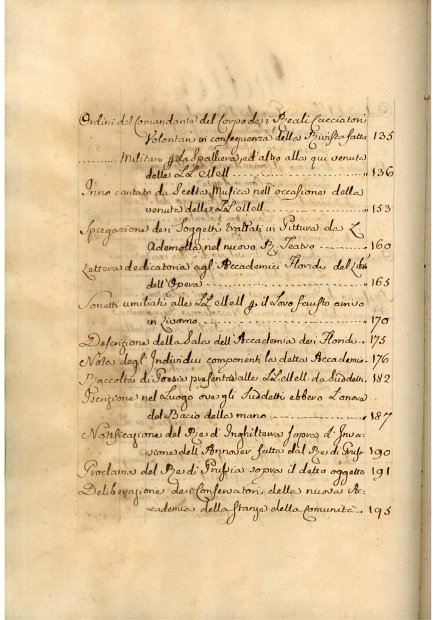 Ordini del Comandante del Corpo dei Reali Cacciatori
Volontari in conseguenza della Rivista fatta 135
Militare p la Spalliera, ed altro alla qui venuta
delle LL MM 136
Inno cantato da Scelta Musica nell' occasione della
venuta delle LL MM 153
Spiegazione dei Soggetti trattati in Pittura da
Ademollo nel nuovo R. Teatro 160
Lettera dedicatoria agl' Accademici Floridi del Lib.
dell' Opera 165
Sonetti umiliati alle LL MM p il loro fausto arrivo
in Livorno 170
Descrizione della Sala dell' Accademia dei Floridi 175
Nota degl' Individui componenti la detta Accademia 176
Raccolta di Poesie presentate alle LL MM da Suddetti 182
Iscrizione nel Luogo ove gli Suddetti ebbero l' onore
del Bacio della mano 187
Notificazione del Re di Inghilterra sopra l' Inva-
sione dell' Annover fatta dal Re di Pruss. 190
Proclama del Re di Prussia sopra il detto oggetto 191
Deliberazione dei Conservatori della nuova Ac-
cademia della Stanze della Comunità 195